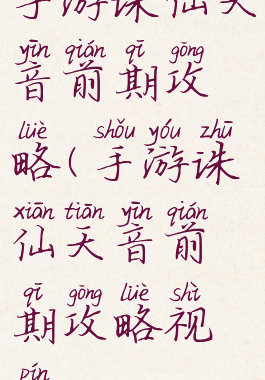 手游诛仙天
yīn qián qī gōng
音前期攻
lüè shǒu yóu zhū
略(手游诛
xiān tiān yīn qián
仙天音前
qī gōng lüè shì
期攻略视
pín